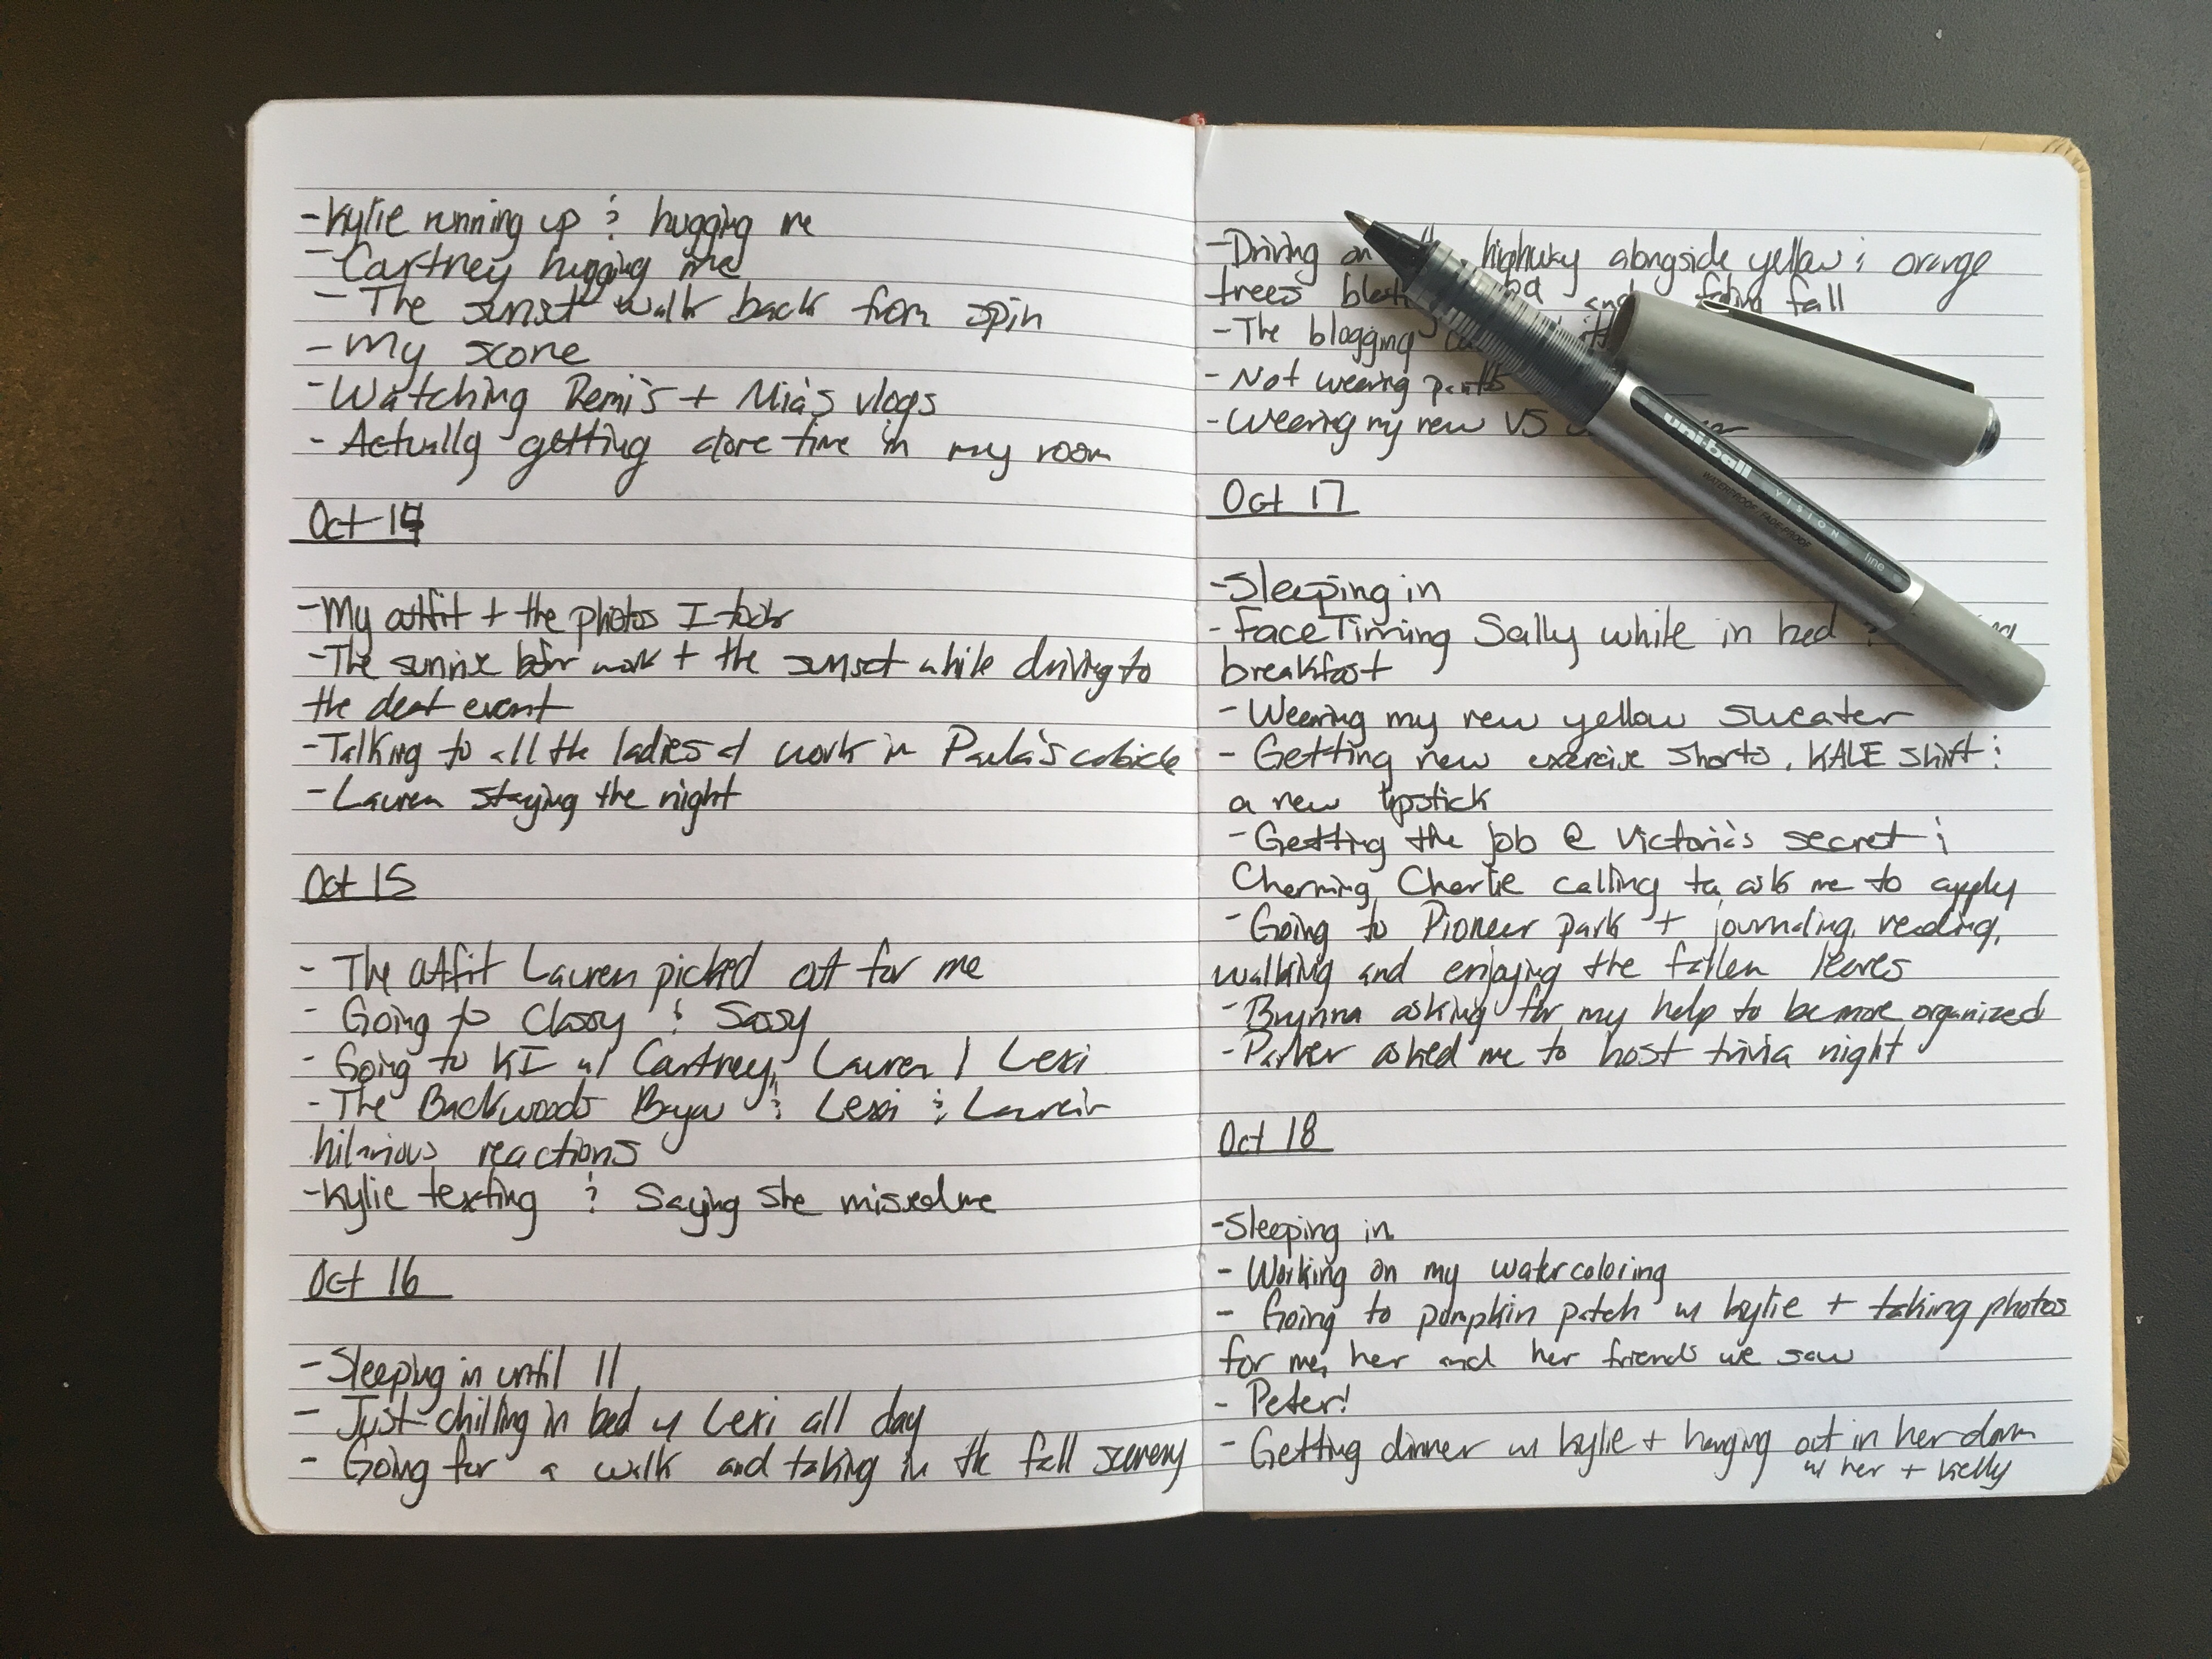 - Kylie running up & hugging me
- Cartney hugging me
- The sunset walk back from spin
- My score
- Watching Remi's + Mia's vlogs
- Actually getting alone time in my room
Oct 14
- My outfit + the photos I took
- The sunrise before work + the sunset while driving to
the deaf event
- Talking to all the ladies at work in Paula's cubicle
- Lauren staying the night
Oct 15
- The outfit Lauren picked out for me
- Going to Classy & Sassy
- Going to KI w/ Cartney, Lauren / Lexi
- The Backwoods & Lexi & Lauren
hilarious reactions
- Kylie texting & saying she missed me
Oct 16
- Sleeping in until 11
- Just chilling in bed w/ Lexi all day
- Going for a walk and taking in the fall scenery
- Driving on highway alongside yellow & orange
trees and fall
- The blogging
- Not wearing pants
- Wearing my new VS
Oct 17
- Sleeping in
- FaceTiming Sally while in bed
breakfast
- Wearing my new yellow sweater
- Getting new exercise shorts, KALE shirt &
a new lipstick
- Getting the job @ Victoria's secret &
Charming Charlie calling to ask me to apply
- Going to Pioneer park + journaling, reading,
walking and enjoying the fallen leaves
- Brynna asking for my help to be more organized
- Parker asked me to host trivia night
Oct 18
- Sleeping in
- Working on my watercoloring
- Going to pumpkin patch w/ Kylie + taking photos
for me, her and her friends we saw
- Peter!
- Getting dinner w/ Kylie + hanging out in her dorm
w/ her + Kielly
uni-ball VISION fine
WATERPROOF / FADE-PROOF